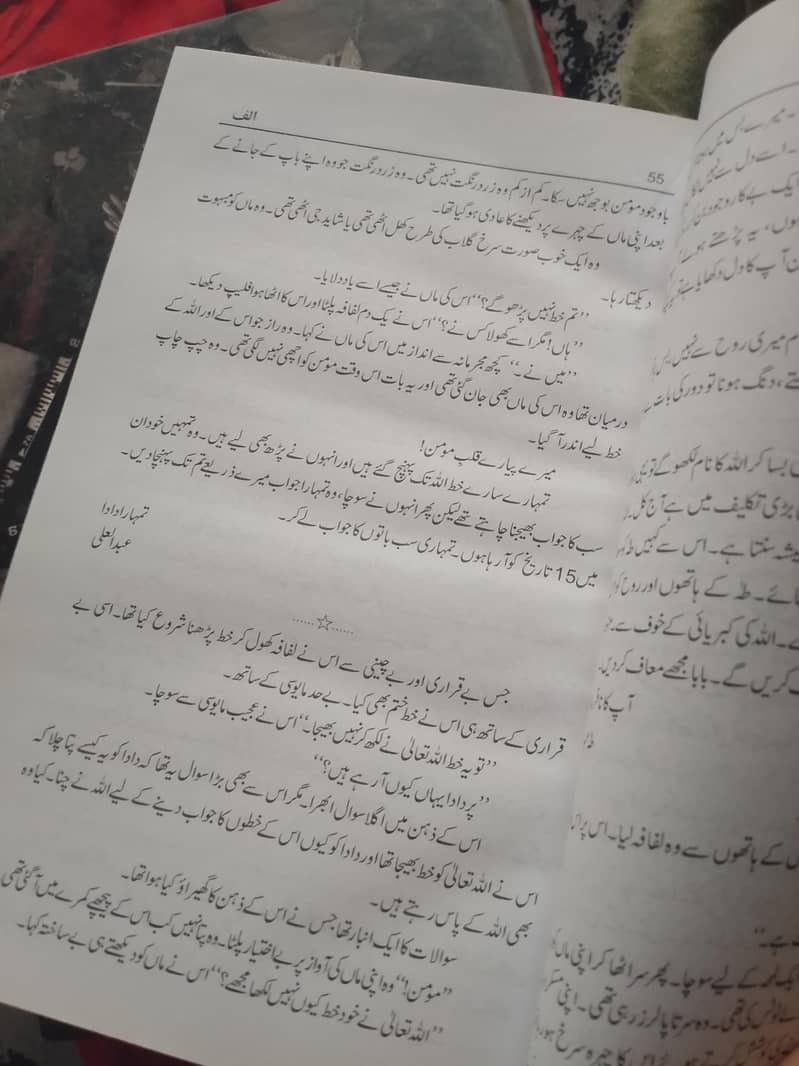 الف
55
باوجود مومن بوجھ نہیں سکا۔ کم از کم وہ زرد رنگت نہیں تھی۔ وہ زرد رنگت جو وہ اپنے باپ کے جانے کے
بعد اپنی ماں کے چہرے پر دیکھنے کا عادی ہو گیا تھا۔
وہ ایک خوب صورت سرخ گلاب کی طرح کھل اٹھی تھی یا شاید جی اٹھی تھی۔ وہ ماں کو مبہوت
دیکھتا رہا۔
’’تم خط نہیں پڑھو گے؟‘‘ اس کی ماں نے جیسے اسے یاد دلایا۔
’’ہاں! مگر اسے کھولا کس نے؟‘‘ اس نے یک دم لفافہ پلٹا اور اس کا اٹھا ہوا فلیپ دیکھا۔
’’میں نے۔‘‘ کچھ مجرمانہ سے انداز میں اس کی ماں نے کہا۔ وہ راز جو اس کے اور اللہ کے
درمیان تھا وہ اس کی ماں بھی جان گئی تھی اور یہ بات اس وقت مومن کو اچھی نہیں لگی تھی۔ وہ چپ چاپ
خط لیے اندر آ گیا۔
میرے پیارے قلبِ مومن!
تمہارے سارے خط اللہ تک پہنچ گئے ہیں اور انہوں نے پڑھ بھی لیے ہیں۔ وہ تمہیں خود ان
سب کا جواب بھیجنا چاہتے تھے لیکن پھر انہوں نے سوچا، وہ تمہارا جواب میرے ذریعے تم تک پہنچا دیں۔
میں 15 تاریخ کو آ رہا ہوں۔ تمہاری سب باتوں کا جواب لے کر۔
تمہارا دادا
عبدالعلی
......☆......
جس بے قراری اور بے چینی سے اس نے لفافہ کھول کر خط پڑھنا شروع کیا تھا۔ اسی بے
قراری کے ساتھ ہی اس نے خط ختم بھی کیا۔ بے حد مایوسی کے ساتھ۔
’’تو یہ خط اللہ تعالیٰ نے لکھ کر نہیں بھیجا۔‘‘ اس نے عجیب مایوسی سے سوچا۔
’’پر دادا یہاں کیوں آ رہے ہیں؟‘‘
اس کے ذہن میں اگلا سوال ابھرا۔ مگر اس سے بھی بڑا سوال یہ تھا کہ دادا کو یہ کیسے پتا چلا کہ
اس نے اللہ تعالیٰ کو خط بھیجا تھا اور دادا کو کیوں اس کے خطوں کا جواب دینے کے لیے اللہ نے چنا۔ کیا وہ
بھی اللہ کے پاس رہتے ہیں۔
سوالات کا ایک انبار تھا جس نے اس کے ذہن کا گھیراؤ کیا ہوا تھا۔
’’مومن!‘‘ وہ اپنی ماں کی آواز پر بے اختیار پلٹا۔ وہ پتا نہیں کب اس کے پیچھے کمرے میں آ گئی تھی
’’اللہ تعالیٰ نے خود خط کیوں نہیں لکھا مجھے؟‘‘ اس نے ماں کو دیکھتے ہی بے ساختہ کہا۔
۔ اسے دل سے نہیں
ایک بے کار وجود
ہوں، یہ پڑھتے ہوئے
آپ کا دل دکھایا ہے
میری روح سے نہیں
تے، دنگ ہونا تو دور کی بات ہے
بسا کر اللہ کا نام لکھو گے تو
بڑی تکلیف میں ہے آج کل۔
سنتا ہے۔ اس سے کہیں
ئے۔ طہٰ کے ہاتھوں اور روح کو
۔ اللہ کی کبریائی کے خوف سے
کریں گے۔ بابا مجھے معاف کر دیں
آپ کا
کے ہاتھوں سے وہ لفافہ لیا۔ اس پر
ہے۔‘‘
کے لیے سوچا۔ پھر سر اٹھا کر اپنی ماں کو
کی تھی۔ وہ سر تا پا لرز رہی تھی۔ اپنی
کی کوشش کرتے ہوئے اس کا چہرہ سرخ ہو